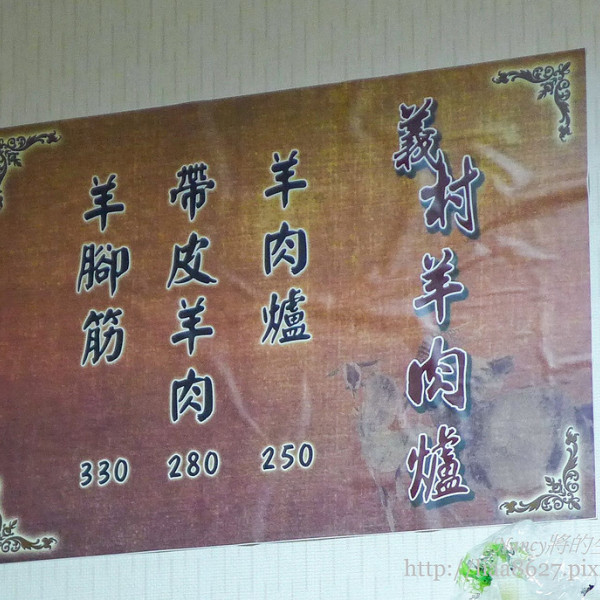 義村羊肉爐
羊肉爐 250
帶皮羊肉 280
羊腳筋 330
Nancy將的